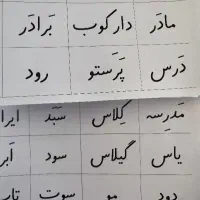 مادَر دارکوب بَرادَر
دَرس پَرَستو رود
مَدرِسه کِلاس سَبَد
یاس گیلاس سود اَبر
دود مو سوت